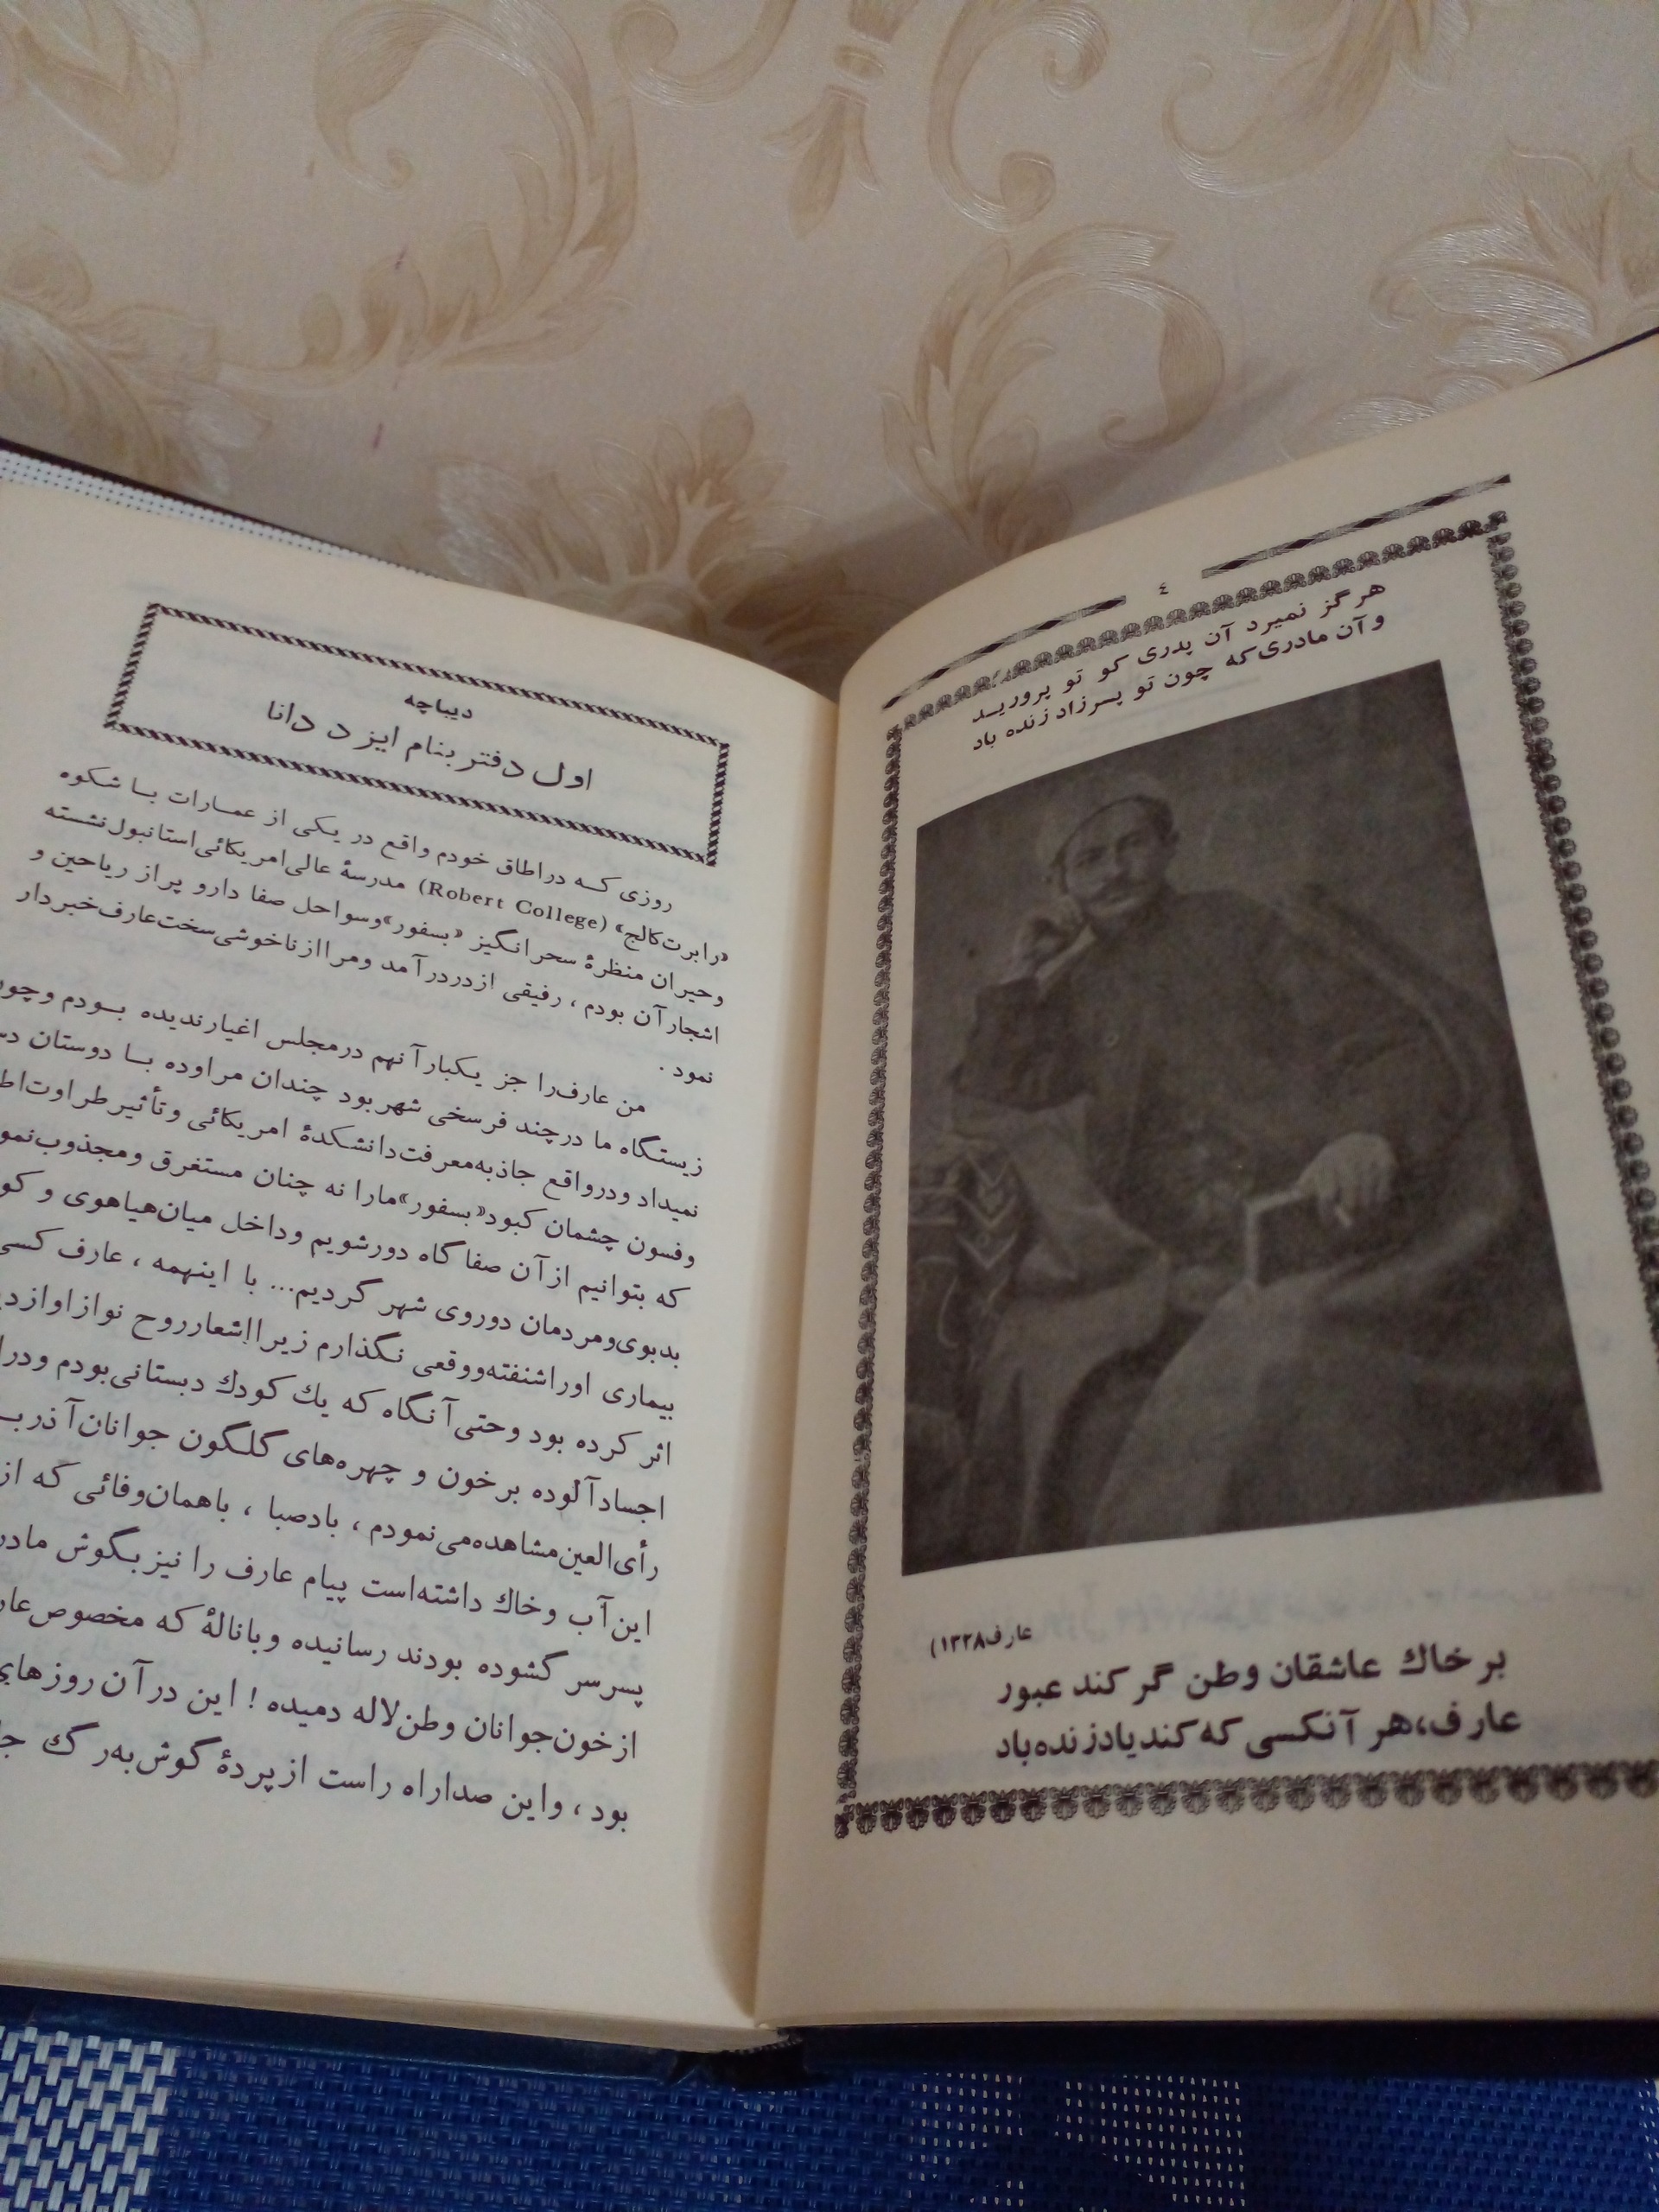 ٤
هرگز نمیرد آن پدری کو تو پروریـد
و آن مادری که چون تو پسرزاد زنده باد
عارف۱۳۲۸)
بر خاك عاشقان وطن گر کند عبور
عارف،هر آنکسی که کند یادزنده باد
دیباچه
اول دفتر بنام ایزد دانا
روزی کـه دراطاق خودم واقع در یکی از عمـارات بـا شکوه
«رابرت کالج» (Robert College) مدرسۀ عالی امریکائی استانبول نشسته
وحیران منظرۀ سحرانگیز «بسفور»وسواحل صفا دارو پراز ریاحین و
اشجارآن بودم ، رفیقی ازدردرآمد ومراازناخوشی سخت عارف خبردار
نمود .
من عارف را جز یکبارآنهم درمجلس اغیارندیده بـودم وچون
زیستگاه ما درچند فرسخی شهربود چندان مراوده بـا دوستان
نمیداد ودرواقع جاذبه معرفت دانشکدۀ امریکائی وتأثیرطراوت
وفسون چشمان کبود«بسفور»مارا نه چنان مستغرق ومجذوب
که بتوانیم ازآن صفا گاه دورشویم وداخل میان هیاهوی و
بدبوی ومردمان دوروی شهر گردیم... با اینهمه ، عارف
بیماری اوراشنفته ووقعی نگذارم زیرااشعارروح نوازاو
اثر کرده بود وحتی آنگاه که یك کودك دبستانی بودم
اجسادآلوده برخون و چهره های گلگون جوانان
رأی العین مشاهده می نمودم ، بادصبا ، باهمان وفائی که از
این آب وخاك داشته است پیام عارف را نیزبگوش
پسرسر گشوده بودند رسانیده وبانالۀ که مخصوص
ازخون جوانان وطن لاله دمیده ! این درآن
بود ، واین صداراه راست ازپردۀ گوش به رگ